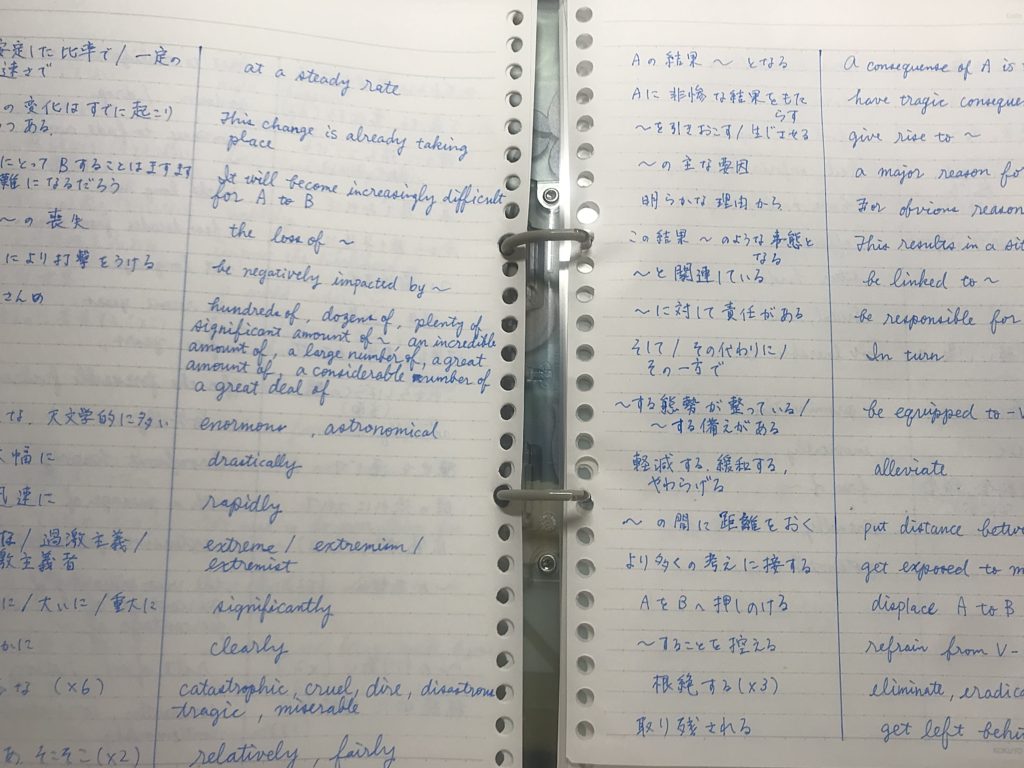 安定した比率で/一定の
速さで
at a steady rate
の変化はすでに起こり
つつある.
This change is already taking
place
にとって Bすることはますます
難になるだろう
It will become increasingly difficult
for A to B
〜の喪失
the loss of 〜
により打撃をうける
be negatively impacted by 〜
さんの
hundreds of, dozens of, plenty of
significant amount of 〜, an incredible
amount of, a large number of, a great
amount of, a considerable number of
a great deal of
な. 天文学的に多い
enormous , astronomical
大幅に
drastically
迅速に
rapidly
/ 過激主義/
激主義者
extreme / extremism /
extremist
に/大いに/重大に
significantly
かに
clearly
な (×6)
catastrophic, cruel, dire, disastrous
tragic, miserable
そこそこ(×2)
relatively, fairly
Aの結果 〜 となる
A consequence of A is
Aに 悲惨な結果をもた
らす
have tragic conseque
〜を引きおこす/生じさせる
give rise to 〜
〜の主な要因
a major reason for
明らかな理由から
For obvious reason
この結果 〜のような事態と
なる
This results in a sit
〜と関連している
be linked to 〜
〜に対して責任がある
be responsible for
そして/その代わりに/
その一方で
In turn
〜する態勢が整っている/
〜する備えがある
be equipped to -V
軽減する, 緩和する,
やわらげる
alleviate
〜の間に距離をおく
put distance betw
より多くの考えに接する
get exposed to m
AをBへ押しのける
displace A to B
〜することを控える
refrain from V-
根絶する(×3)
eliminate, eradica
取り残される
get left behi